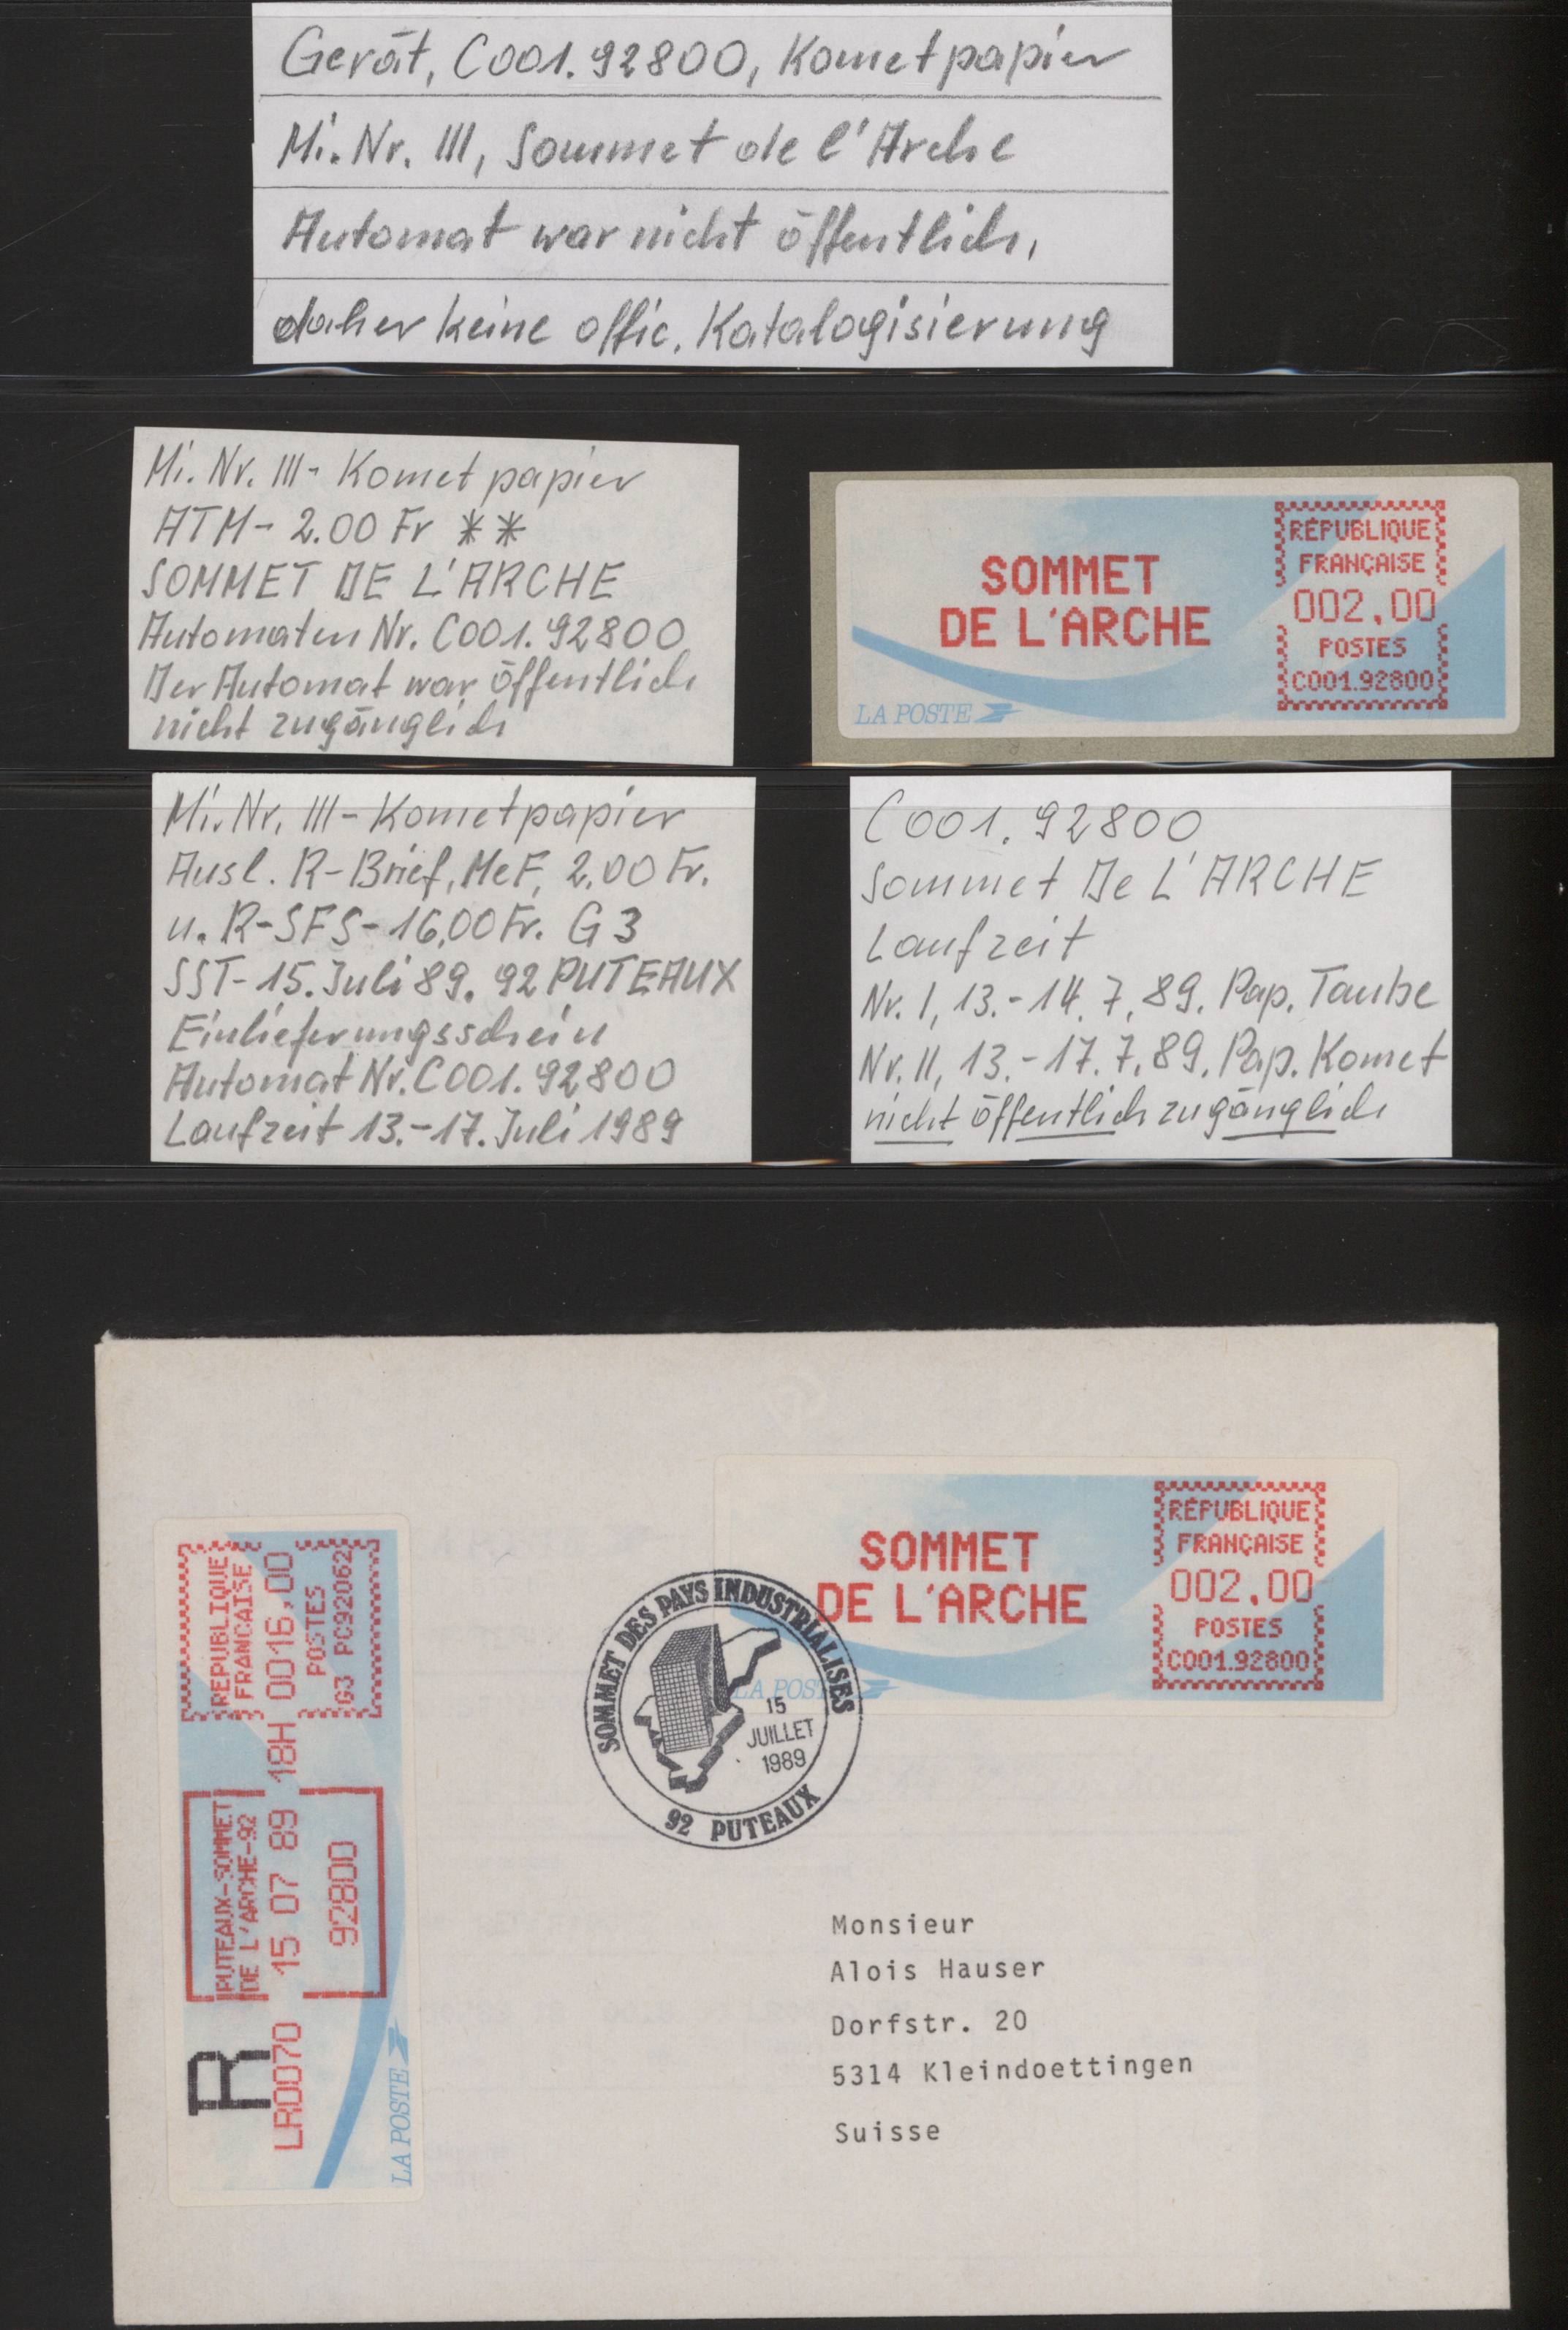 Gerät, C001.92800, Kometpapier
Mi. Nr. III, Sommet de l'Arche
Automat war nicht öffentlich,
daher keine offic. Katalogisierung
Mi. Nr. III - Komet papier
ATM - 2.00 Fr **
SOMMET DE L'ARCHE
Automaten Nr. C001.92800
Der Automat war öffentlich
nicht zugänglich
SOMMET
DE L'ARCHE
RÉPUBLIQUE
FRANÇAISE
002,00
POSTES
C001.92800
LA POSTE
Mi. Nr. III - Kometpapier
Ausl. R-Brief, MeF, 2.00 Fr.
u. R-SFS-16,00 Fr. G3
SST-15. Juli 89. 92 PUTEAUX
Einlieferungsschein
Automat Nr. C001.92800
Laufzeit 13.-17. Juli 1989
C001.92800
Sommet De L'ARCHE
Laufzeit
Nr. I, 13.-14.7.89. Pap. Taube
Nr. II, 13.-17.7.89. Pap. Komet
nicht öffentlich zugänglich
SOMMET
DE L'ARCHE
RÉPUBLIQUE
FRANÇAISE
002,00
POSTES
C001.92800
LA POSTE
SOMMET DES PAYS INDUSTRIALISES
15
JUILLET
1989
92 PUTEAUX
REPUBLIQUE
FRANCAISE
0016,00
POSTES
G3 PC92062
PUTEAUX-SOMMET
DE L'ARCHE-92
15 07 89 18H
92800
R
LR0070
LA POSTE
Monsieur
Alois Hauser
Dorfstr. 20
5314 Kleindoettingen
Suisse